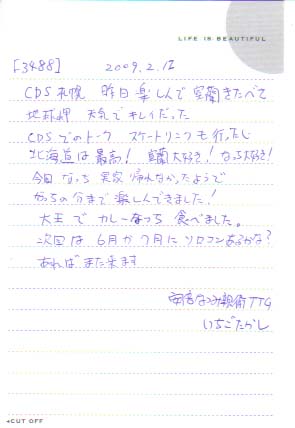 LIFE IS BEAUTIFUL
[3488] 2009.2.12
CDS札幌 昨日楽しんで室蘭きたべさ
地球岬 天気でキレイだった
CDSでのトーク スケートリンクも行ったし
北海道は最高! 室蘭大好き! なっち大好き!
今回なっち 実家帰れなかったようで
なっちの分まで楽しんできました!
大王でカレーなっち食べました。
次回は6月か7月にソロコンあるかな?
あればまた来ます
安倍なつみ親衛TTG
いちごたかし
◂CUT OFF